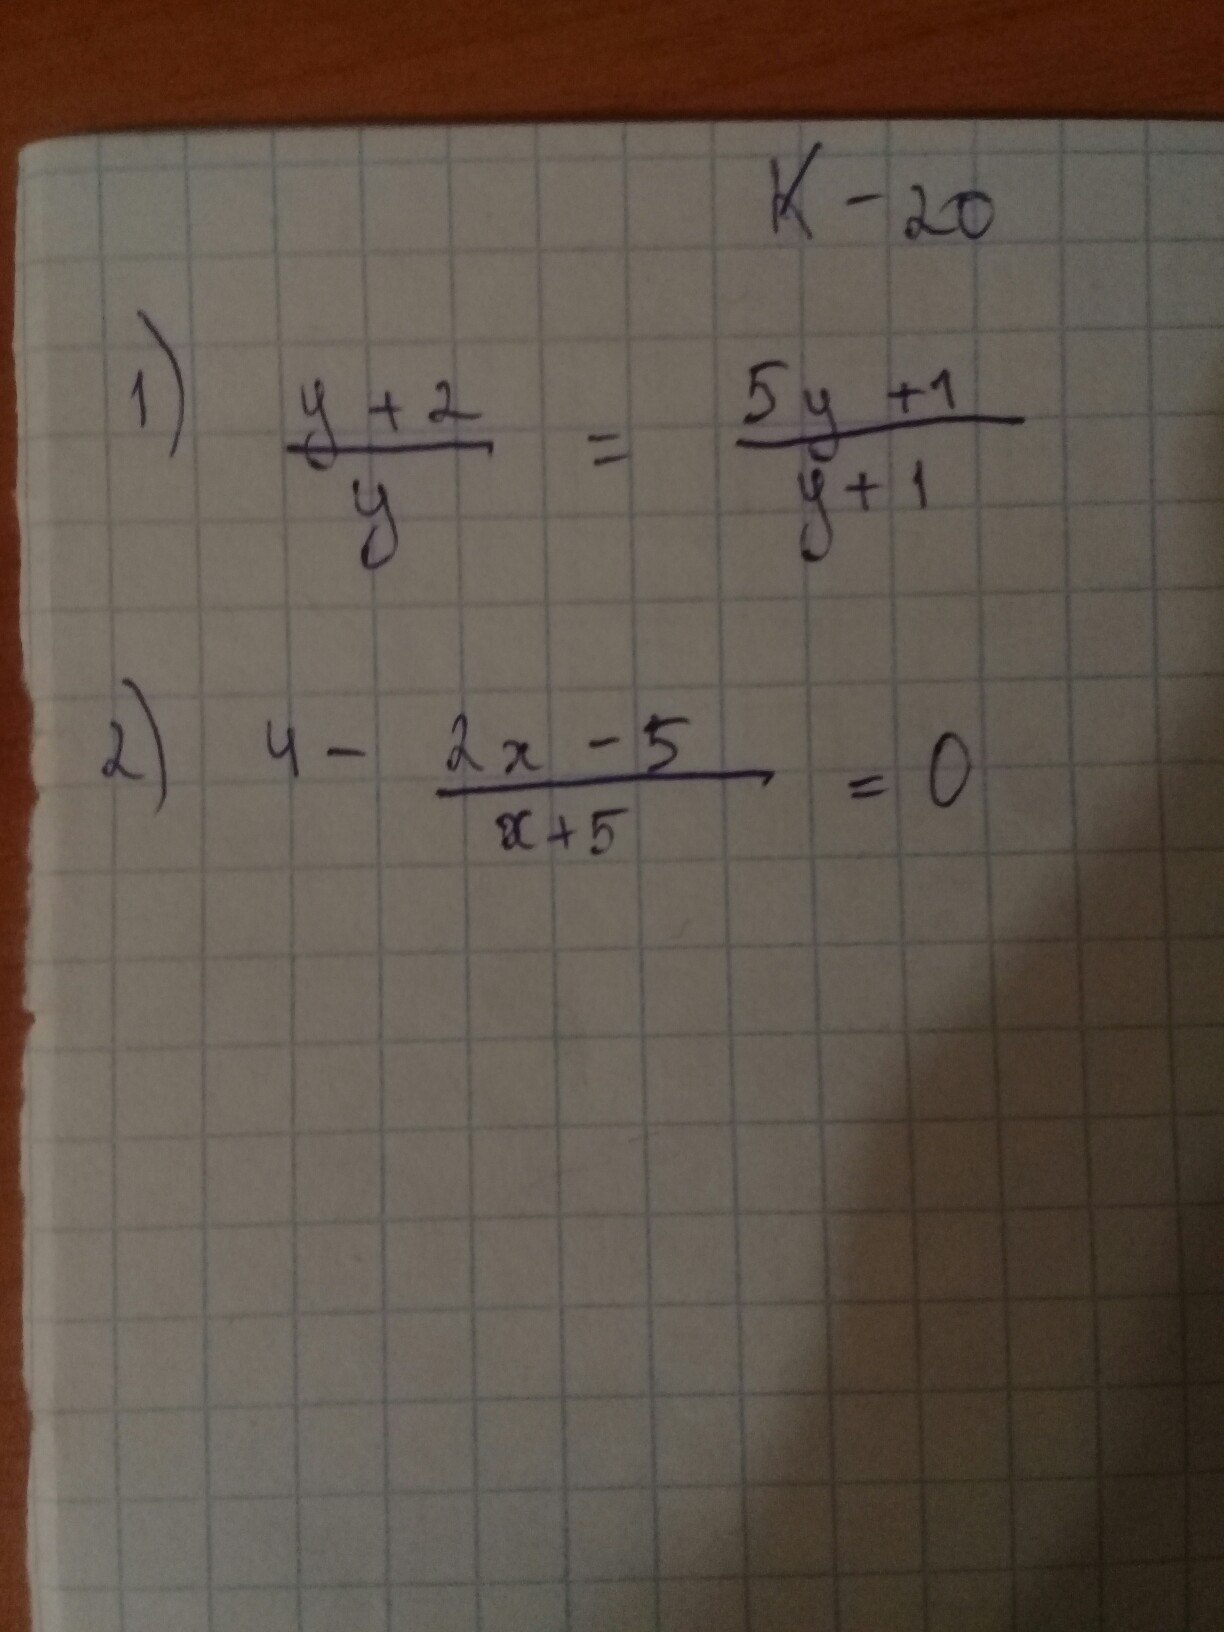 K - 20
1) (y + 2)/y = (5y + 1)/(y + 1)
2) 4 - (2x - 5)/(x + 5) = 0